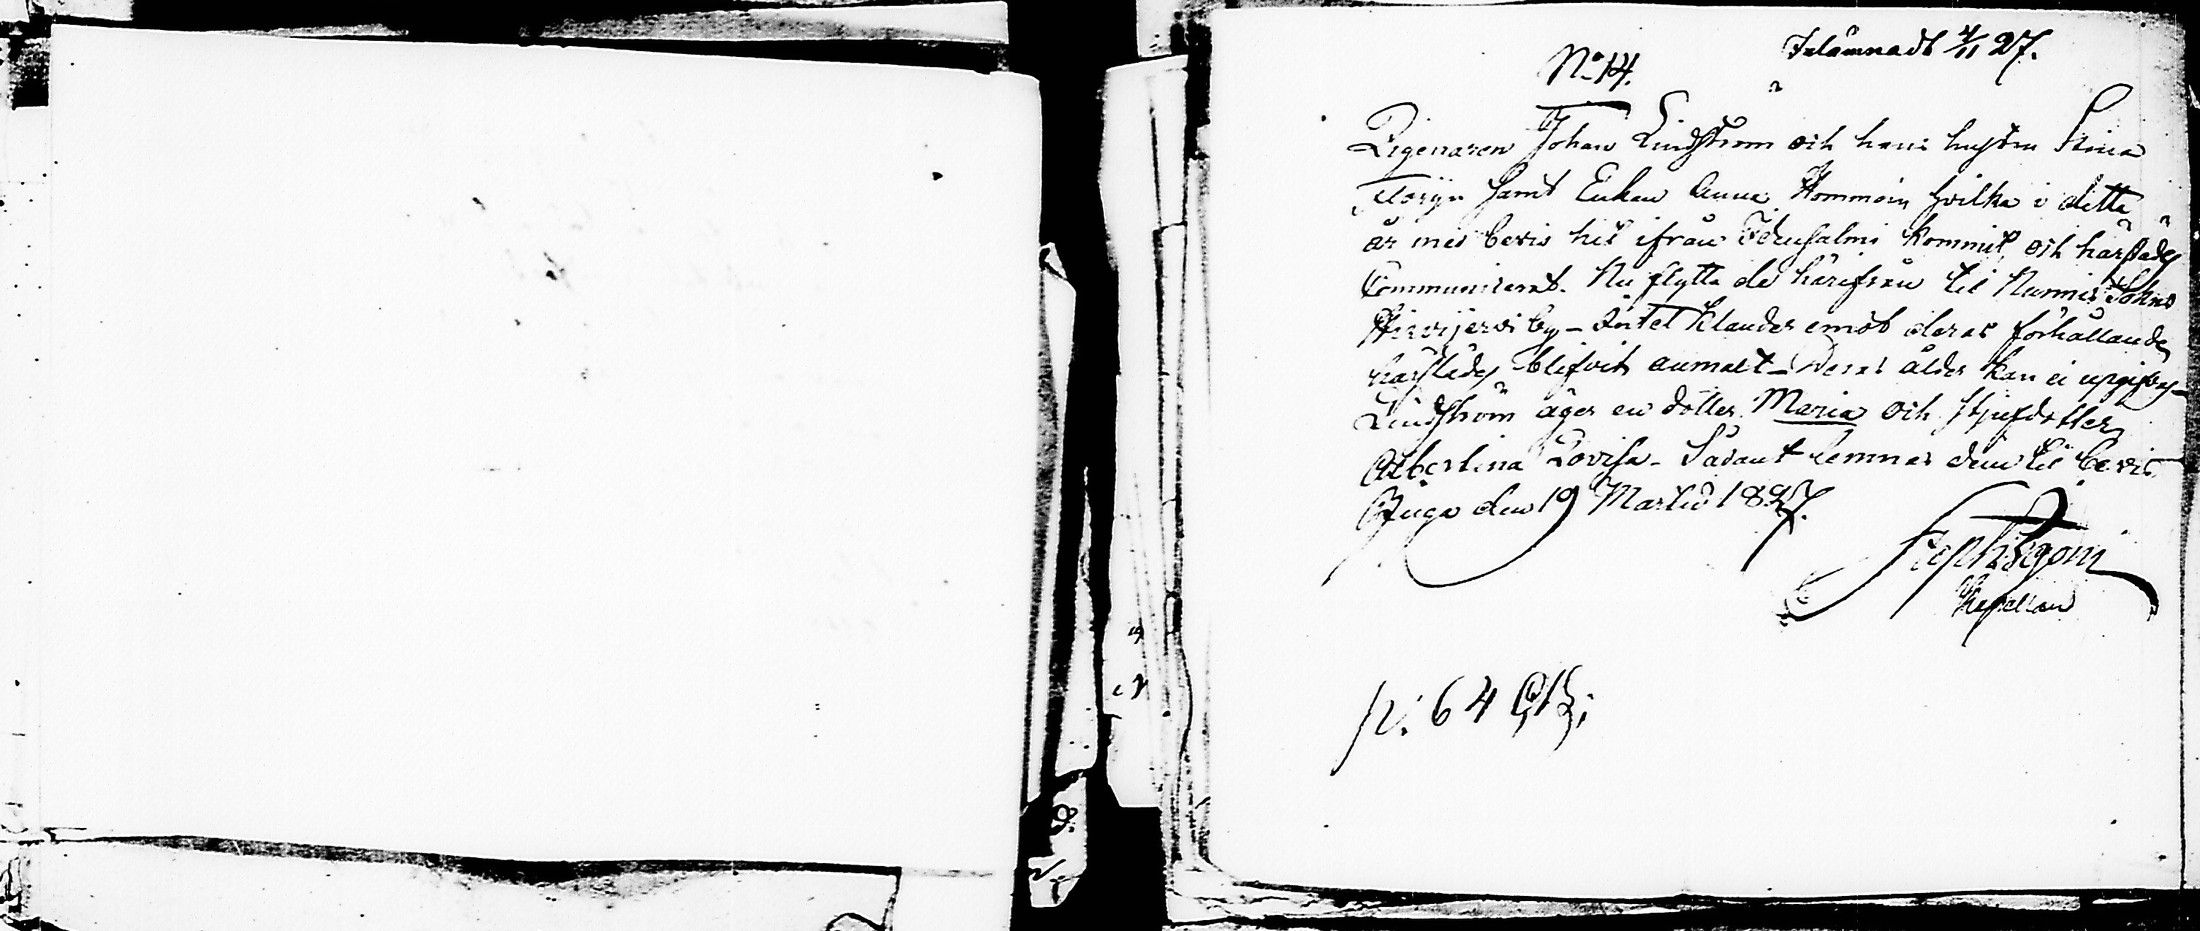 Inlämnadt 4/11 27.
No 14.
Zigenaren Johan Lindström och hans hustru Stina
Floryn samt Enkan Anna hvilka i detta
år med bevis hit ifrån Idensalmi kommit, och härstädes
Communicerat. Nu flytta de härifrån til Nurmis Sokns
Hirvijervi by - Intet klander emot deras förhållande
härstädes blifvit anmält - Deras ålder kan ei upgifvas -
Lindström äger en dotter Maria och Stjufdotter
Albertina Lovisa - Sådant lemnas dem til bevis
den 19 Martii 1827.
Kapellan
p: 64